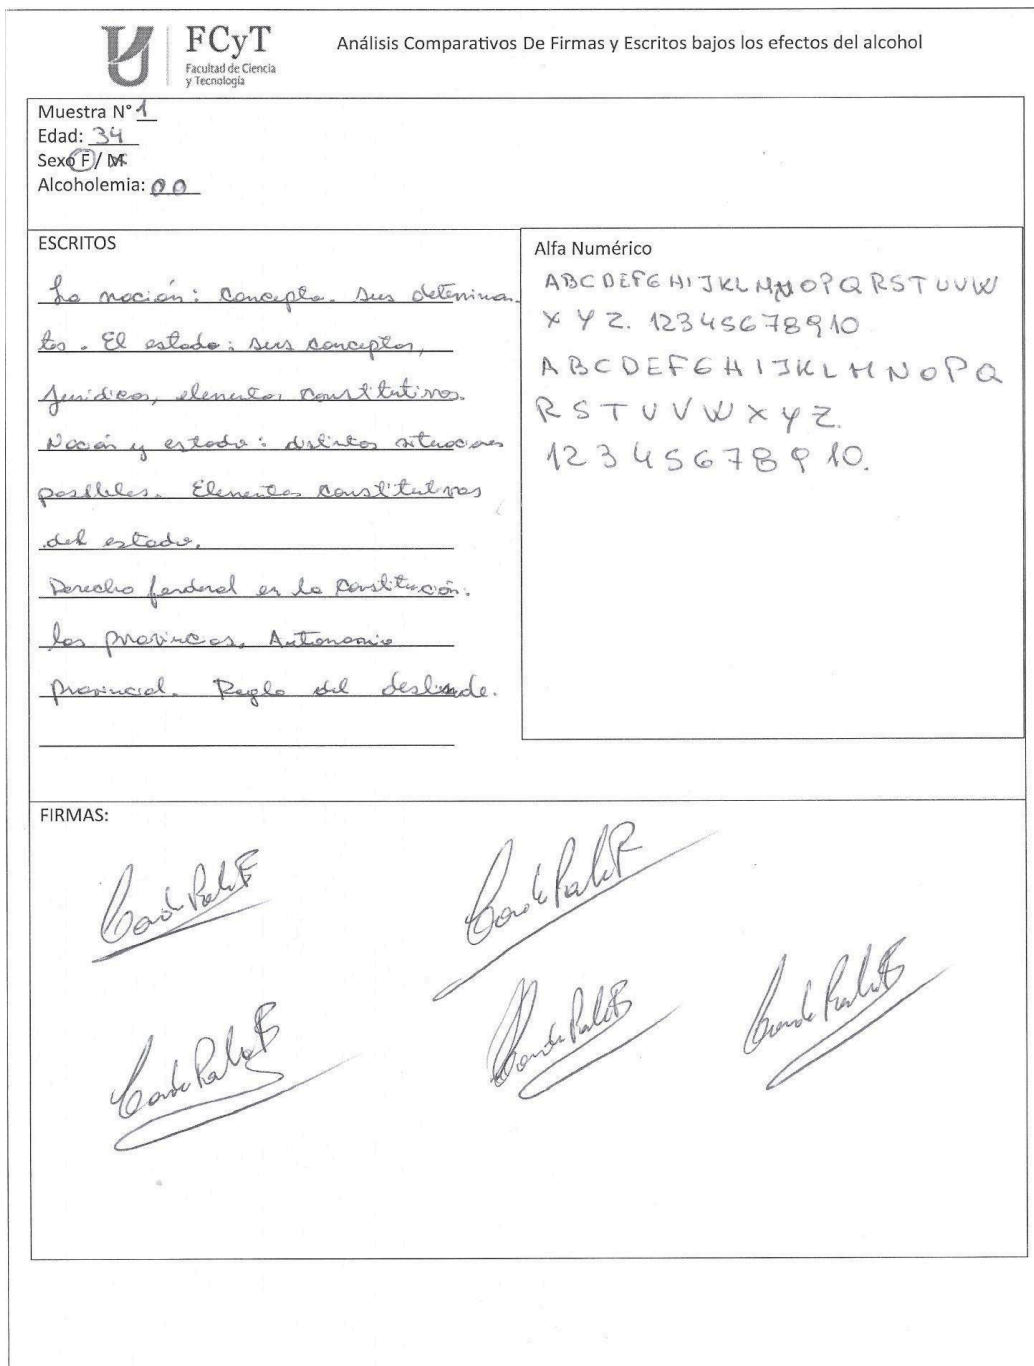 FCyT
Facultad de Ciencia
y Tecnología
Análisis Comparativos De Firmas y Escritos bajos los efectos del alcohol
Muestra N° 1
Edad: 34
Sexo F/ M
Alcoholemia: 00
ESCRITOS
La nación: concepto. Sus determinan-
tes. El estado: sus conceptos,
jurídicos, elementos constitutivos.
Nación y estado: distintos situaciones
posibles. Elementos constitutivos
del estado.
Derecho fenderal en la constitución:
las provincias. Autonomia
provincial. Regla del deslinde.
Alfa Numérico
ABCDEFGHIJKLMNOPQRSTUVW
XYZ. 12345678910
ABCDEFGHIJKLMNOPQ
RSTUVWXYZ.
12345678910.
FIRMAS: